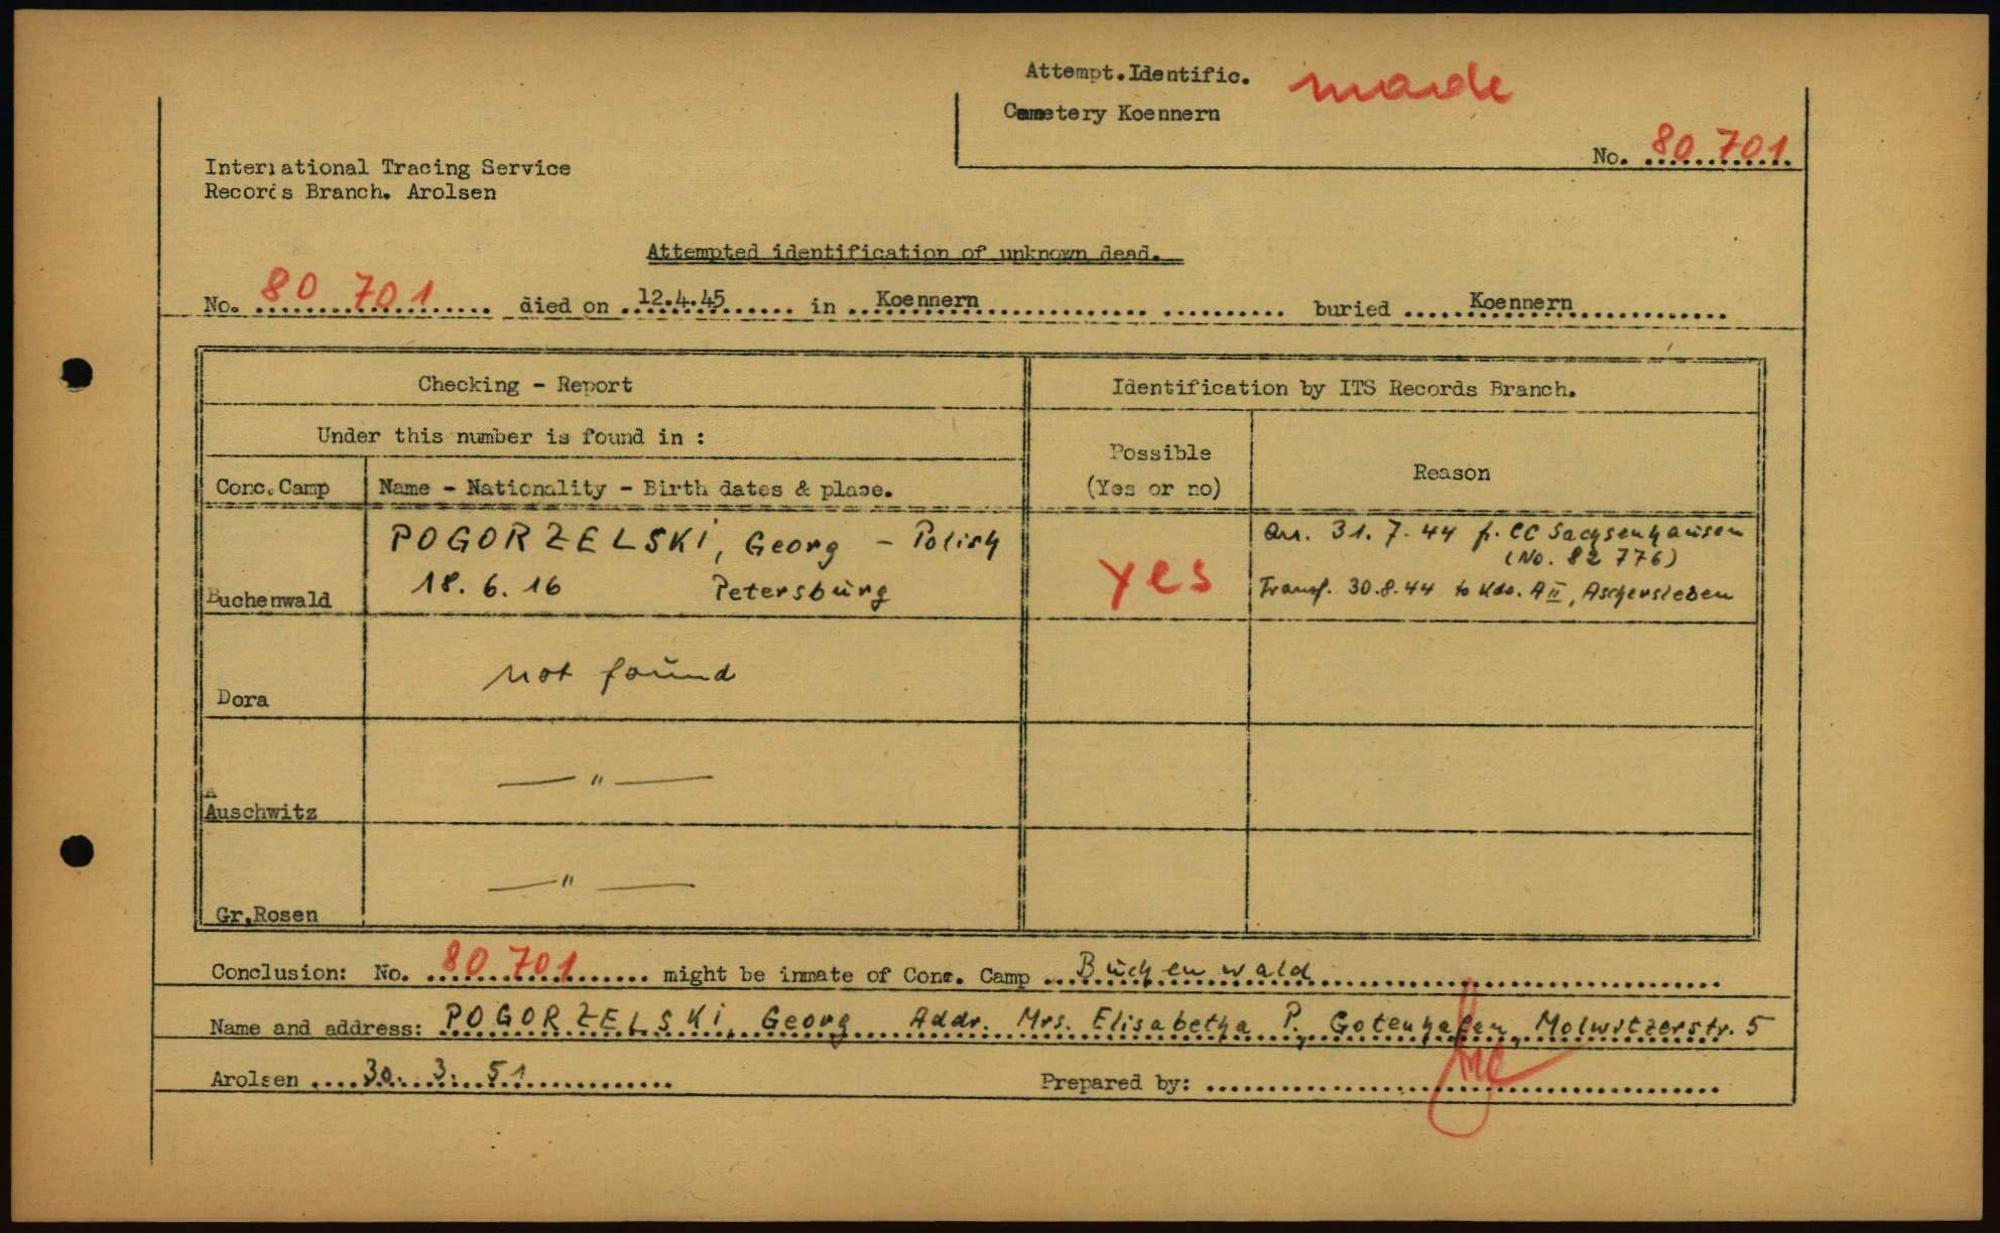 Attempt.Identific. made
Cemetery Koennern
No. 80 701
International Tracing Service
Records Branch. Arolsen
Attempted identification of unknown dead.
No. 80 701 died on 12.4.45 in Koennern buried Koennern
Checking - Report
Identification by ITS Records Branch.
Under this number is found in :
Possible
(Yes or no)
Reason
Conc.Camp
Name - Nationality - Birth dates & place.
Buchenwald
POGORZELSKI, Georg - Polish
18. 6. 16 Petersburg
yes
Arr. 31. 7. 44 fr. CC Sachsenhausen
(No. 82 776)
Transf. 30.8.44 to Kdo. A II, Aschersleben
Dora
not found
Auschwitz
— " —
Gr.Rosen
— " —
Conclusion: No. 80 701 might be inmate of Conc. Camp Buchenwald
Name and address: POGORZELSKI, Georg Addr. Mrs. Elisabetha P., Gotenhafen, Molwitzerstr. 5
Arolsen 30. 3. 51
Prepared by: